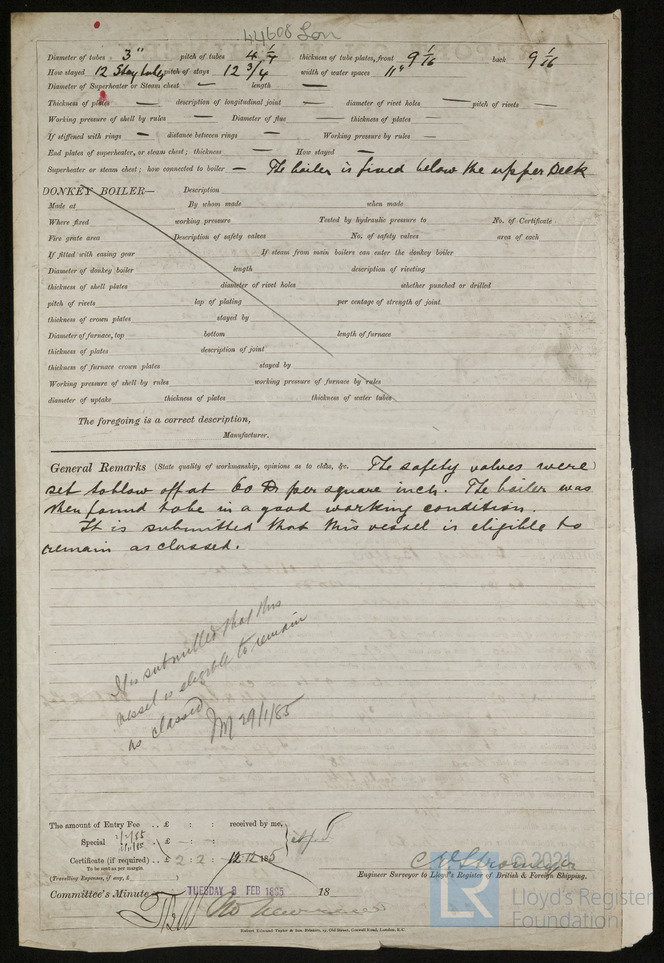 44608 Lon
Diameter of tubes 3" pitch of tubes 4 1/4 thickness of tube plates, front 9/16 back 9/16
How stayed 12 Stay tubes pitch of stays 12 3/4 width of water spaces 11"
Diameter of Superheater or Steam chest — length —
Thickness of plates — description of longitudinal joint — diameter of rivet holes — pitch of rivets —
Working pressure of shell by rules — Diameter of flue — thickness of plates —
If stiffened with rings — distance between rings — Working pressure by rules —
End plates of superheater, or steam chest; thickness — How stayed —
Superheater or steam chest; how connected to boiler — The boiler is fixed below the upper Deck
DONKEY BOILER— Description
Made at By whom made when made
Where fixed working pressure Tested by hydraulic pressure to No. of Certificate
Fire grate area Description of safety valves No. of safety valves area of each
If fitted with easing gear If steam from main boilers can enter the donkey boiler
Diameter of donkey boiler length description of riveting
thickness of shell plates diameter of rivet holes whether punched or drilled
pitch of rivets lap of plating per centage of strength of joint
thickness of crown plates stayed by
Diameter of furnace, top bottom length of furnace
thickness of plates description of joint
thickness of furnace crown plates stayed by
Working pressure of shell by rules working pressure of furnace by rules
diameter of uptake thickness of plates thickness of water tubes
The foregoing is a correct description,
Manufacturer.
General Remarks (State quality of workmanship, opinions as to class, &c. The safety valves were
set to blow off at 60 lbs per square inch. The boiler was
then found to be in a good working condition.
It is submitted that this vessel is eligible to
remain as classed.
It is submitted that this
vessel is eligible to remain
as classed
29/1/85
The amount of Entry Fee .. £ : : received by me,
Special .. £ — : — :
Certificate (if required) .. £ 2 : 2 : 12.12.1885
To be sent as per margin.
(Travelling Expenses, if any, £ )
Engineer Surveyor to Lloyd's Register of British & Foreign Shipping.
Committee's Minute TUESDAY 3 FEB 1885 18
© 2021
LR Lloyd's Register
Foundation